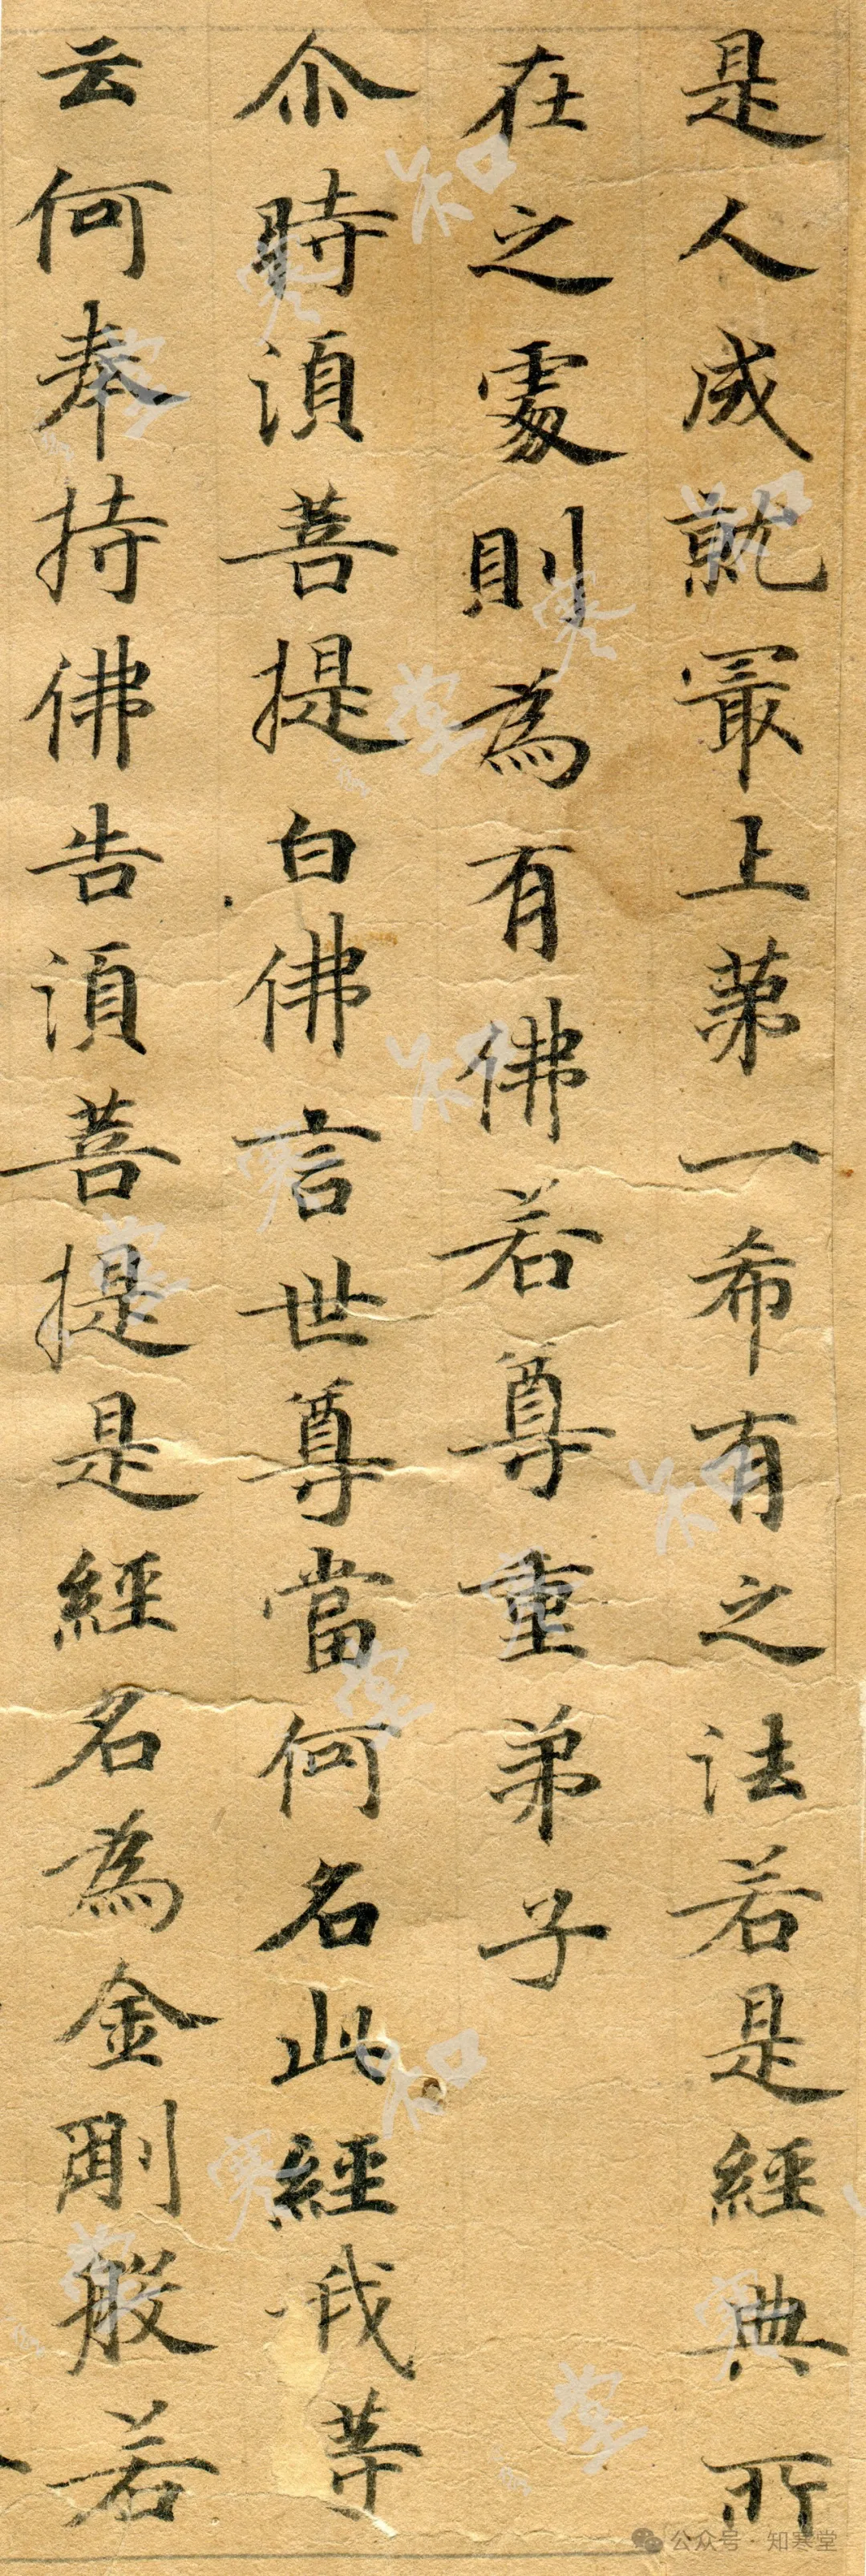 是人成就冣上苐一希有之法若是經典所
在之處則為有佛若尊重弟子
尒時湏菩提白佛言世尊當何名此經我䒭
云何奉持佛告湏菩提是經名為金剛般若
公众号·知寒堂